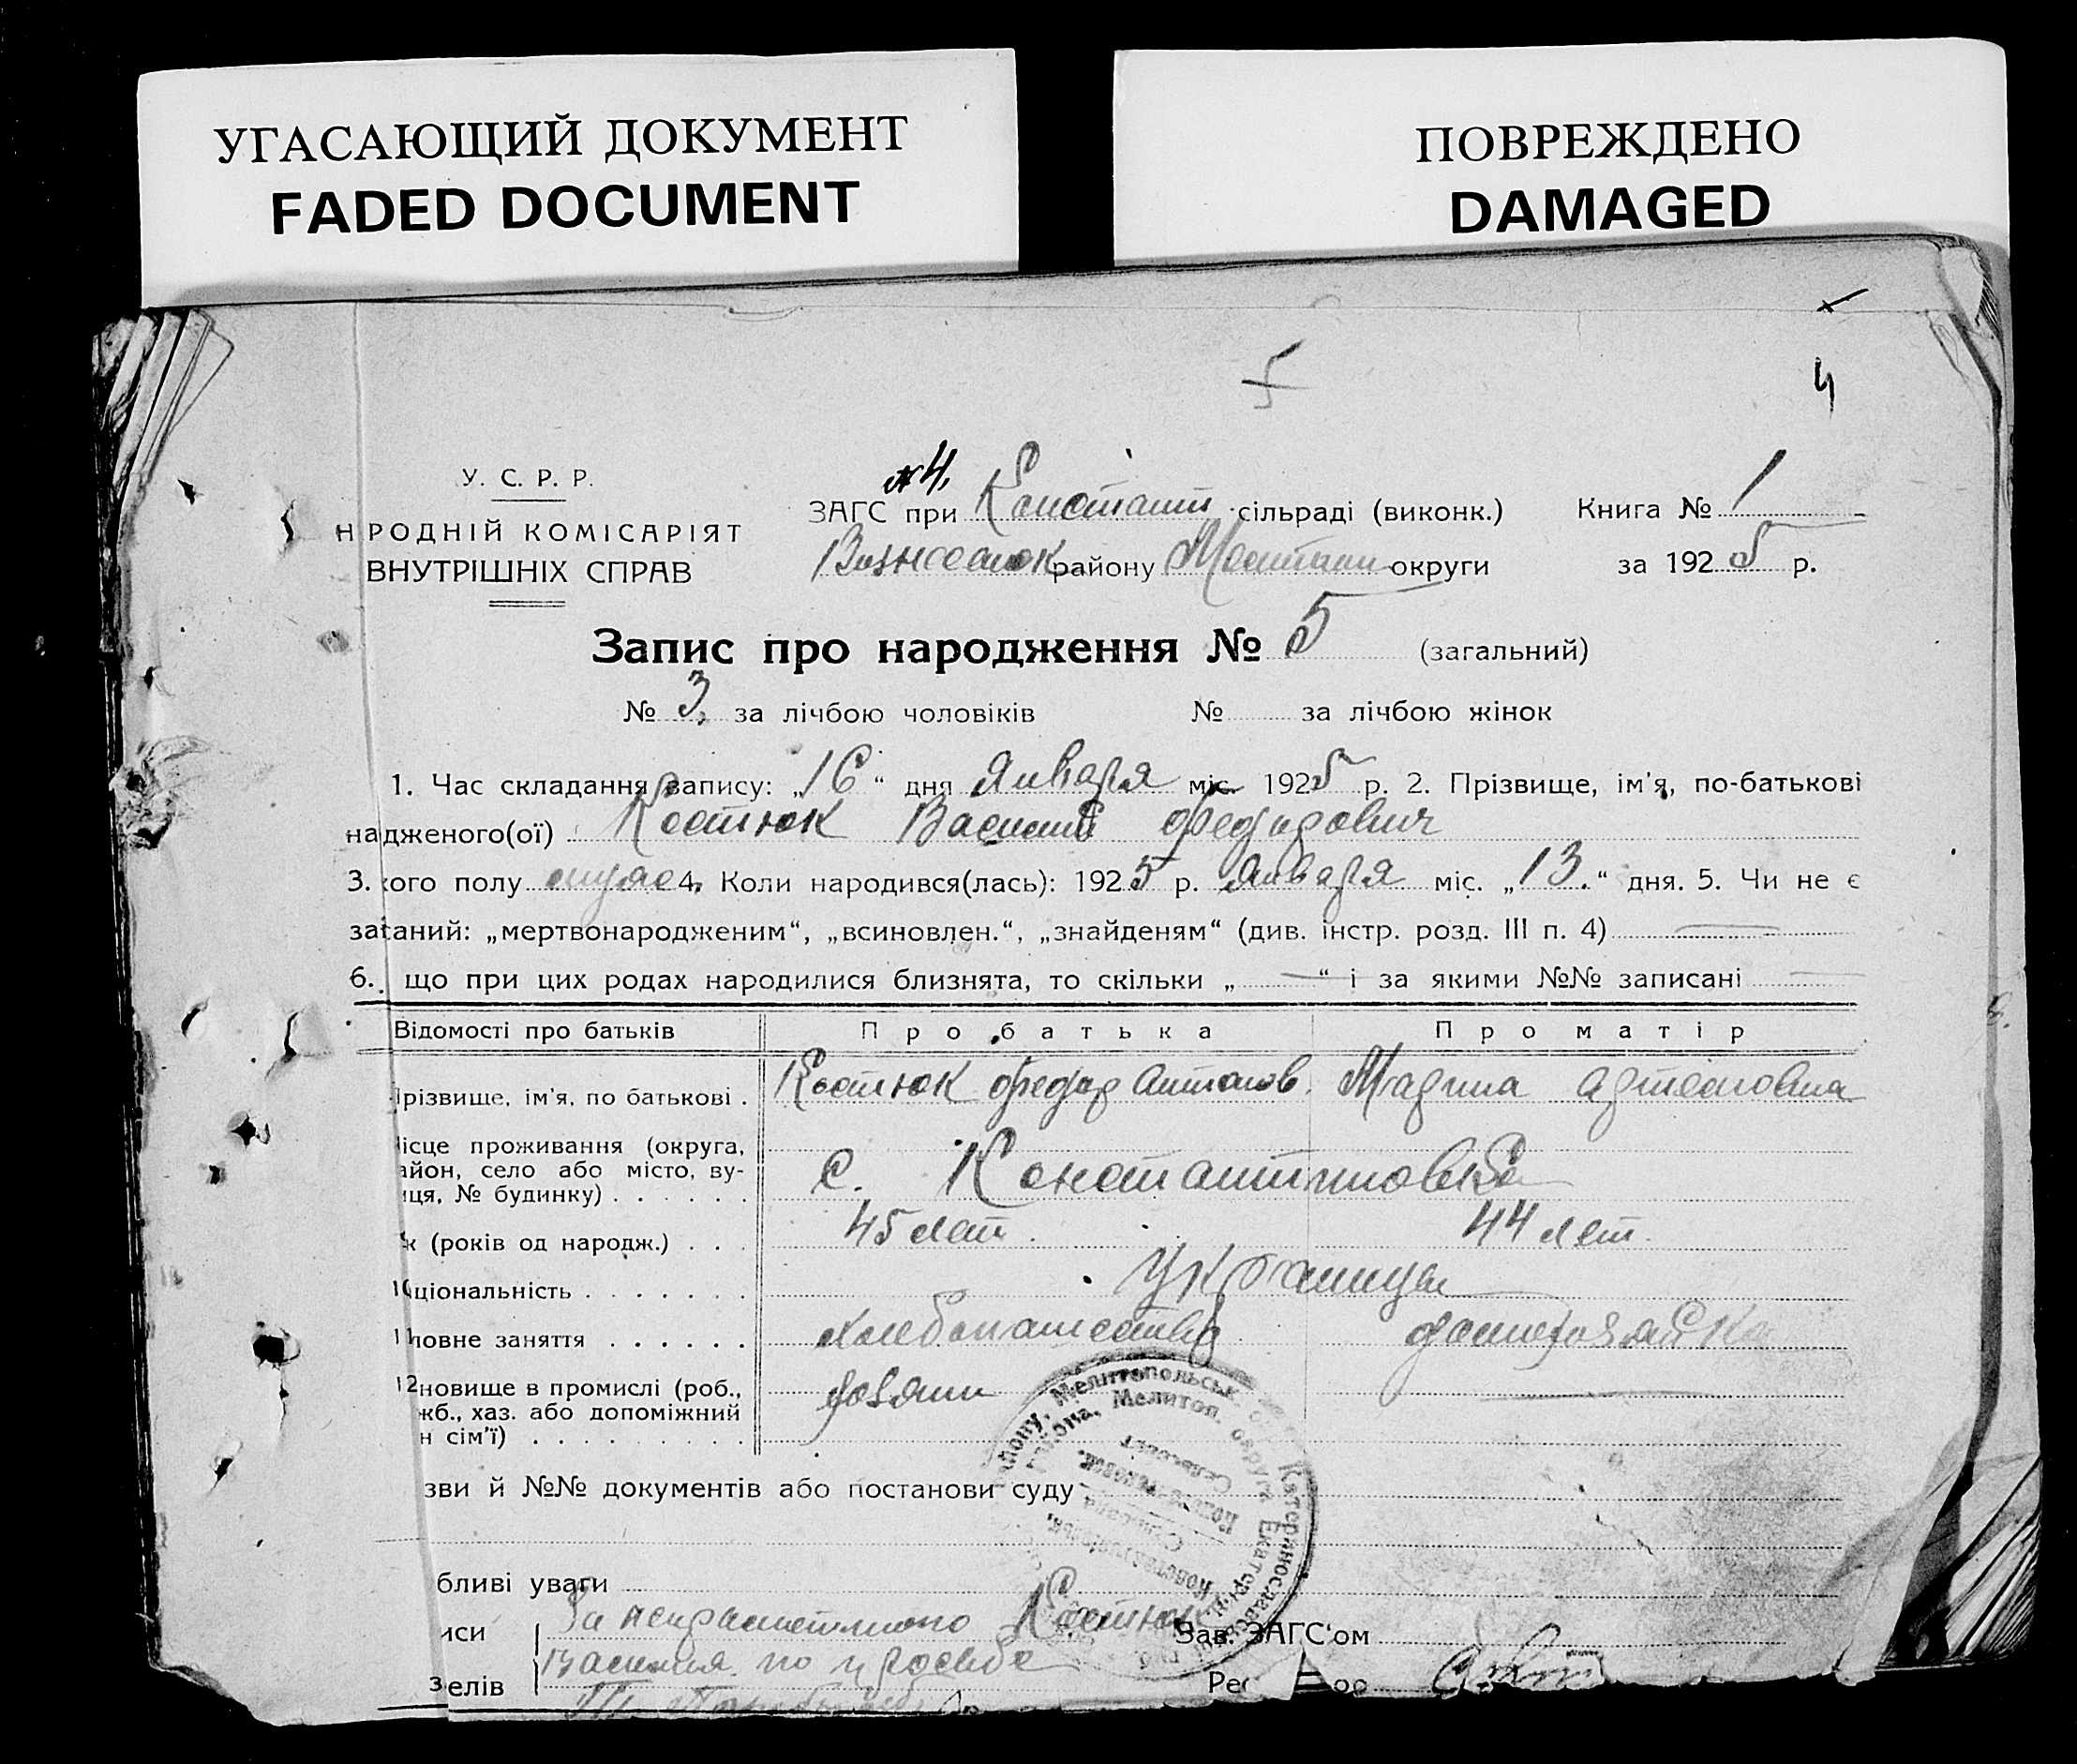 УГАСАЮЩИЙ ДОКУМЕНТ
FADED DOCUMENT
ПОВРЕЖДЕНО
DAMAGED
5
4
У. С. Р. Р.
Н РОДНІЙ КОМІСАРІЯТ
ВНУТРІШНІХ СПРАВ
№4.
ЗАГС при Констант сільраді (виконк.)
Вознесенск району Мелитоп округи
Книга № 1
за 1925 р.
Запис про народження № 5 (загальний)
№ 3. за лічбою чоловіків № за лічбою жінок
1. Час складання запису: „16“ дня Января міс. 1925 р. 2. Прізвище, ім'я, по-батькові
надженого(ої) Костюк Василий Федорович
3. кого полу муж 4. Коли народився(лась): 1925 р. Января міс. „13.“ дня. 5. Чи не є
заtаний: „мертвонародженим“, „всиновлен.“, „знайденям“ (див. інстр. розд. III п. 4)
6. що при цих родах народилися близнята, то скільки „ “ і за якими №№ записані
Відомості про батьків Про батька Про матір
різвище, ім'я, по батькові . Костюк Федор Антонов. Марина Артемовна
ісце проживання (округа,
айон, село або місто, ву-
иця, № будинку) . . . . . . с. Константиновка
к (років од народж.) . . . 45 лет. 44 лет.
ціональність . . . . . . . Украинцы
11 ловне заняття . . . . . . Хлебопашество домохозяйка
12 новище в промислі (роб., хозяин
жб., хаз. або допоміжний
н сім'ї) . . . . . . . . .
зви й №№ документів або постанови суду
бливі уваги
иси За неграмотного Костюк Зав. ЗАГС'ом
елів Василия по просьбе